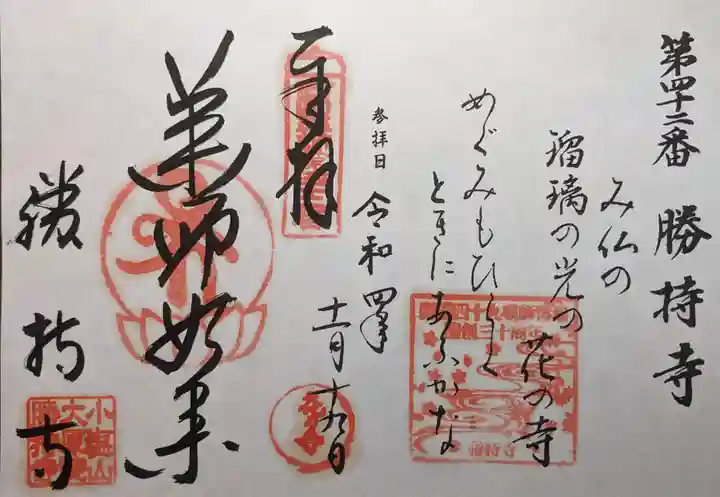 第四十二番 勝持寺
み仏の
瑠璃の光の
花の寺
めぐみもひらく
ときにあふかな
参拝日
令和四年
十一月十九日
奉拝
薬師如来
勝持寺